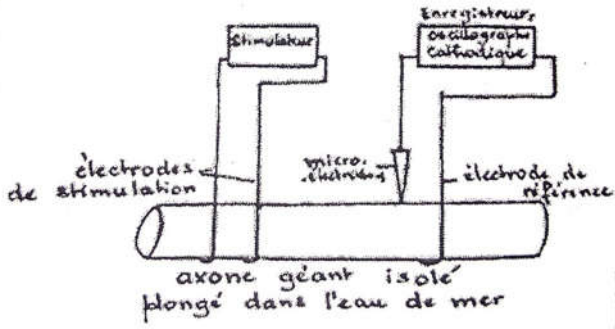 Stimulateur
Enregistreurs
oscillographe
Cathodique
électrodes
de stimulation
micro.
électrodes
électrode de
référence
axone géant isolé
plongé dans l'eau de mer